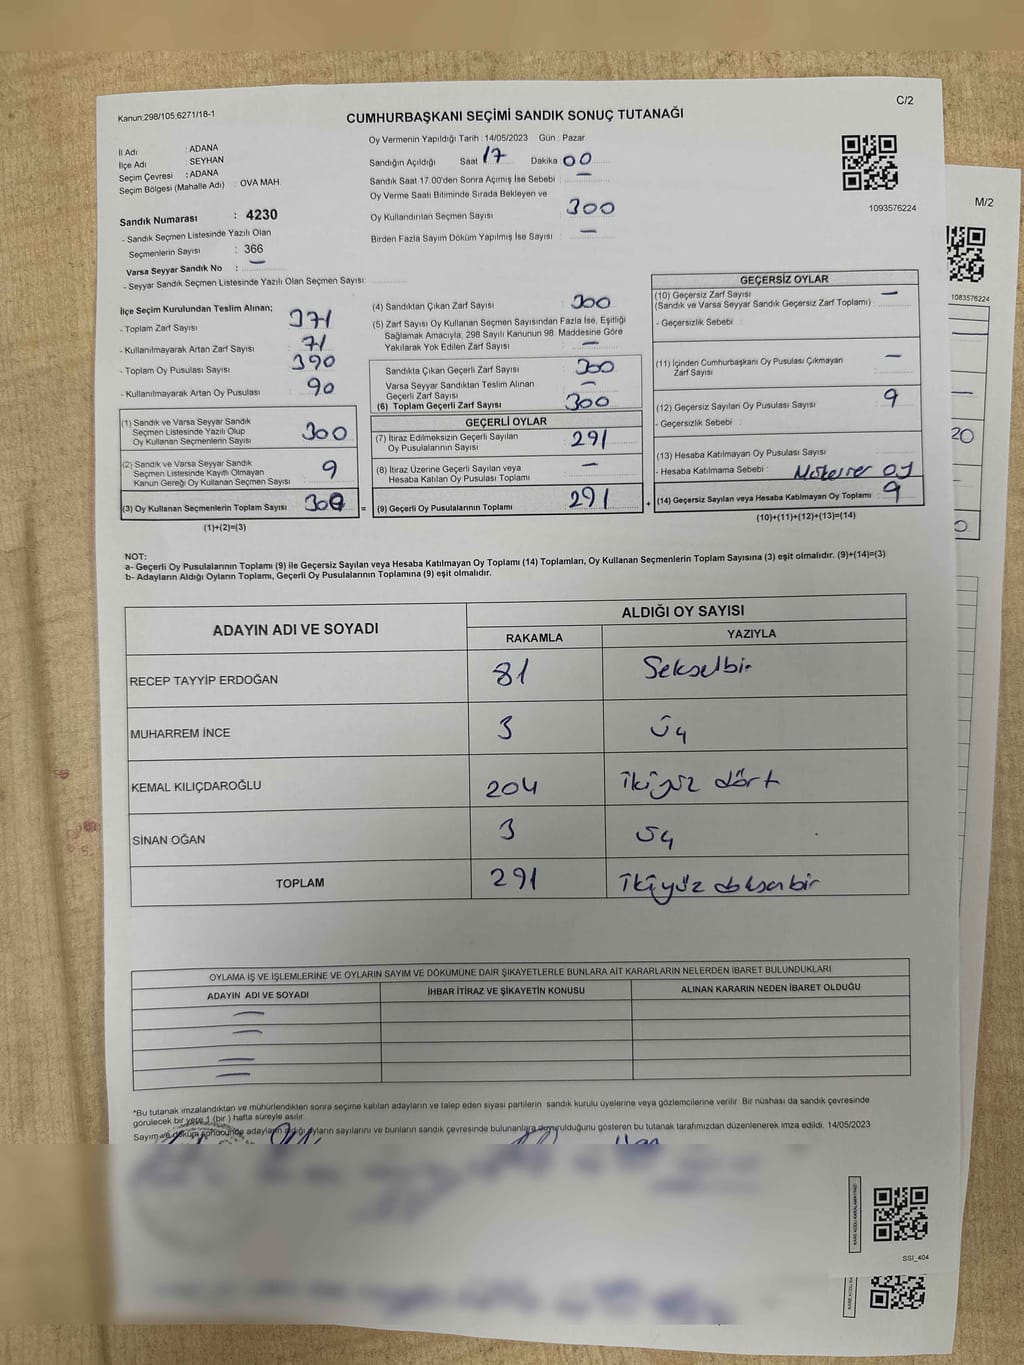 Kanun.298/105,6271/18-1
C/2
CUMHURBAŞKANI SEÇİMİ SANDIK SONUÇ TUTANAĞI
İl Adı : ADANA
İlçe Adı : SEYHAN
Seçim Çevresi : ADANA
Seçim Bölgesi (Mahalle Adı) : OVA MAH.
Sandık Numarası : 4230
- Sandık Seçmen Listesinde Yazılı Olan
Seçmenlerin Sayısı : 366
Varsa Seyyar Sandık No : —
- Seyyar Sandık Seçmen Listesinde Yazılı Olan Seçmen Sayısı:
Oy Vermenin Yapıldığı Tarih : 14/05/2023 Gün : Pazar
Sandığın Açıldığı Saat 17 Dakika 00
Sandık Saat 17.00'den Sonra Açımış İse Sebebi : —
Oy Verme Saati Bitiminde Sırada Bekleyen ve
Oy Kullandırılan Seçmen Sayısı 300
Birden Fazla Sayım Döküm Yapılmış İse Sayısı : —
1093576224
M/2
1083576224
İlçe Seçim Kurulundan Teslim Alınan;
- Toplam Zarf Sayısı 371
- Kullanılmayarak Artan Zarf Sayısı : 71
- Toplam Oy Pusulası Sayısı 390
- Kullanılmayarak Artan Oy Pusulası 90
(1) Sandık ve Varsa Seyyar Sandık
Seçmen Listesinde Yazılı Olup
Oy Kullanan Seçmenlerin Sayısı 300
(2) Sandık ve Varsa Seyyar Sandık
Seçmen Listesinde Kayıtlı Olmayan
Kanun Gereği Oy Kullanan Seçmen Sayısı 9
(3) Oy Kullanan Seçmenlerin Toplam Sayısı
(1)+(2)=(3)
(4) Sandıktan Çıkan Zarf Sayısı 300
(5) Zarf Sayısı Oy Kullanan Seçmen Sayısından Fazla İse, Eşitliği
Sağlamak Amacıyla, 298 Sayılı Kanunun 98. Maddesine Göre
Yakılarak Yok Edilen Zarf Sayısı : —
Sandıkta Çıkan Geçerli Zarf Sayısı 300
Varsa Seyyar Sandıktan Teslim Alınan
Geçerli Zarf Sayısı —
(6) Toplam Geçerli Zarf Sayısı 300
GEÇERLİ OYLAR
(7) İtiraz Edilmeksizin Geçerli Sayılan
Oy Pusulalarının Sayısı 291
(8) İtiraz Üzerine Geçerli Sayılan veya
Hesaba Katılan Oy Pusulası Toplamı —
= (9) Geçerli Oy Pusulalarının Toplamı 291
GEÇERSİZ OYLAR
(10) Geçersiz Zarf Sayısı —
(Sandık ve Varsa Seyyar Sandık Geçersiz Zarf Toplamı) :
- Geçersizlik Sebebi :
(11) İçinden Cumhurbaşkanı Oy Pusulası Çıkmayan
Zarf Sayısı : —
(12) Geçersiz Sayılan Oy Pusulası Sayısı : 9
- Geçersizlik Sebebi :
(13) Hesaba Katılmayan Oy Pusulası Sayısı :
- Hesaba Katılmama Sebebi : oy
+ (14) Geçersiz Sayılan veya Hesaba Katılmayan Oy Toplamı : 9
(10)+(11)+(12)+(13)=(14)
20
0
NOT:
a- Geçerli Oy Pusulalarının Toplamı (9) ile Geçersiz Sayılan veya Hesaba Katılmayan Oy Toplamı (14) Toplamları, Oy Kullanan Seçmenlerin Toplam Sayısına (3) eşit olmalıdır. (9)+(14)=(3)
b- Adayların Aldığı Oyların Toplamı, Geçerli Oy Pusulalarının Toplamına (9) eşit olmalıdır.
ADAYIN ADI VE SOYADI
ALDIĞI OY SAYISI
RAKAMLA YAZIYLA
RECEP TAYYİP ERDOĞAN 81 Sekselbir
MUHARREM İNCE 3 üç
KEMAL KILIÇDAROĞLU 204 ikiyüz dört
SİNAN OĞAN 3 üç
TOPLAM 291 ikiyüz doksanbir
OYLAMA İŞ VE İŞLEMLERİNE VE OYLARIN SAYIM VE DÖKÜMÜNE DAİR ŞİKAYETLERLE BUNLARA AİT KARARLARIN NELERDEN İBARET BULUNDUKLARI
ADAYIN ADI VE SOYADI İHBAR İTİRAZ VE ŞİKAYETİN KONUSU ALINAN KARARIN NEDEN İBARET OLDUĞU
*Bu tutanak imzalandıktan ve mühürlendikten sonra seçime katılan adayların ve talep eden siyasi partilerin sandık kurulu üyelerine veya gözlemcilerine verilir. Bir nüshası da sandık çevresinde
görülecek bir yere 1 (bir ) hafta süreyle asılır.
Sayım ve döküm sonucunda adayların aldığı oyların sayılarını ve bunların sandık çevresinde bulunanlara duyurulduğunu gösteren bu tutanak tarafımızdan düzenlenerek imza edildi. 14/05/2023
SSI_404